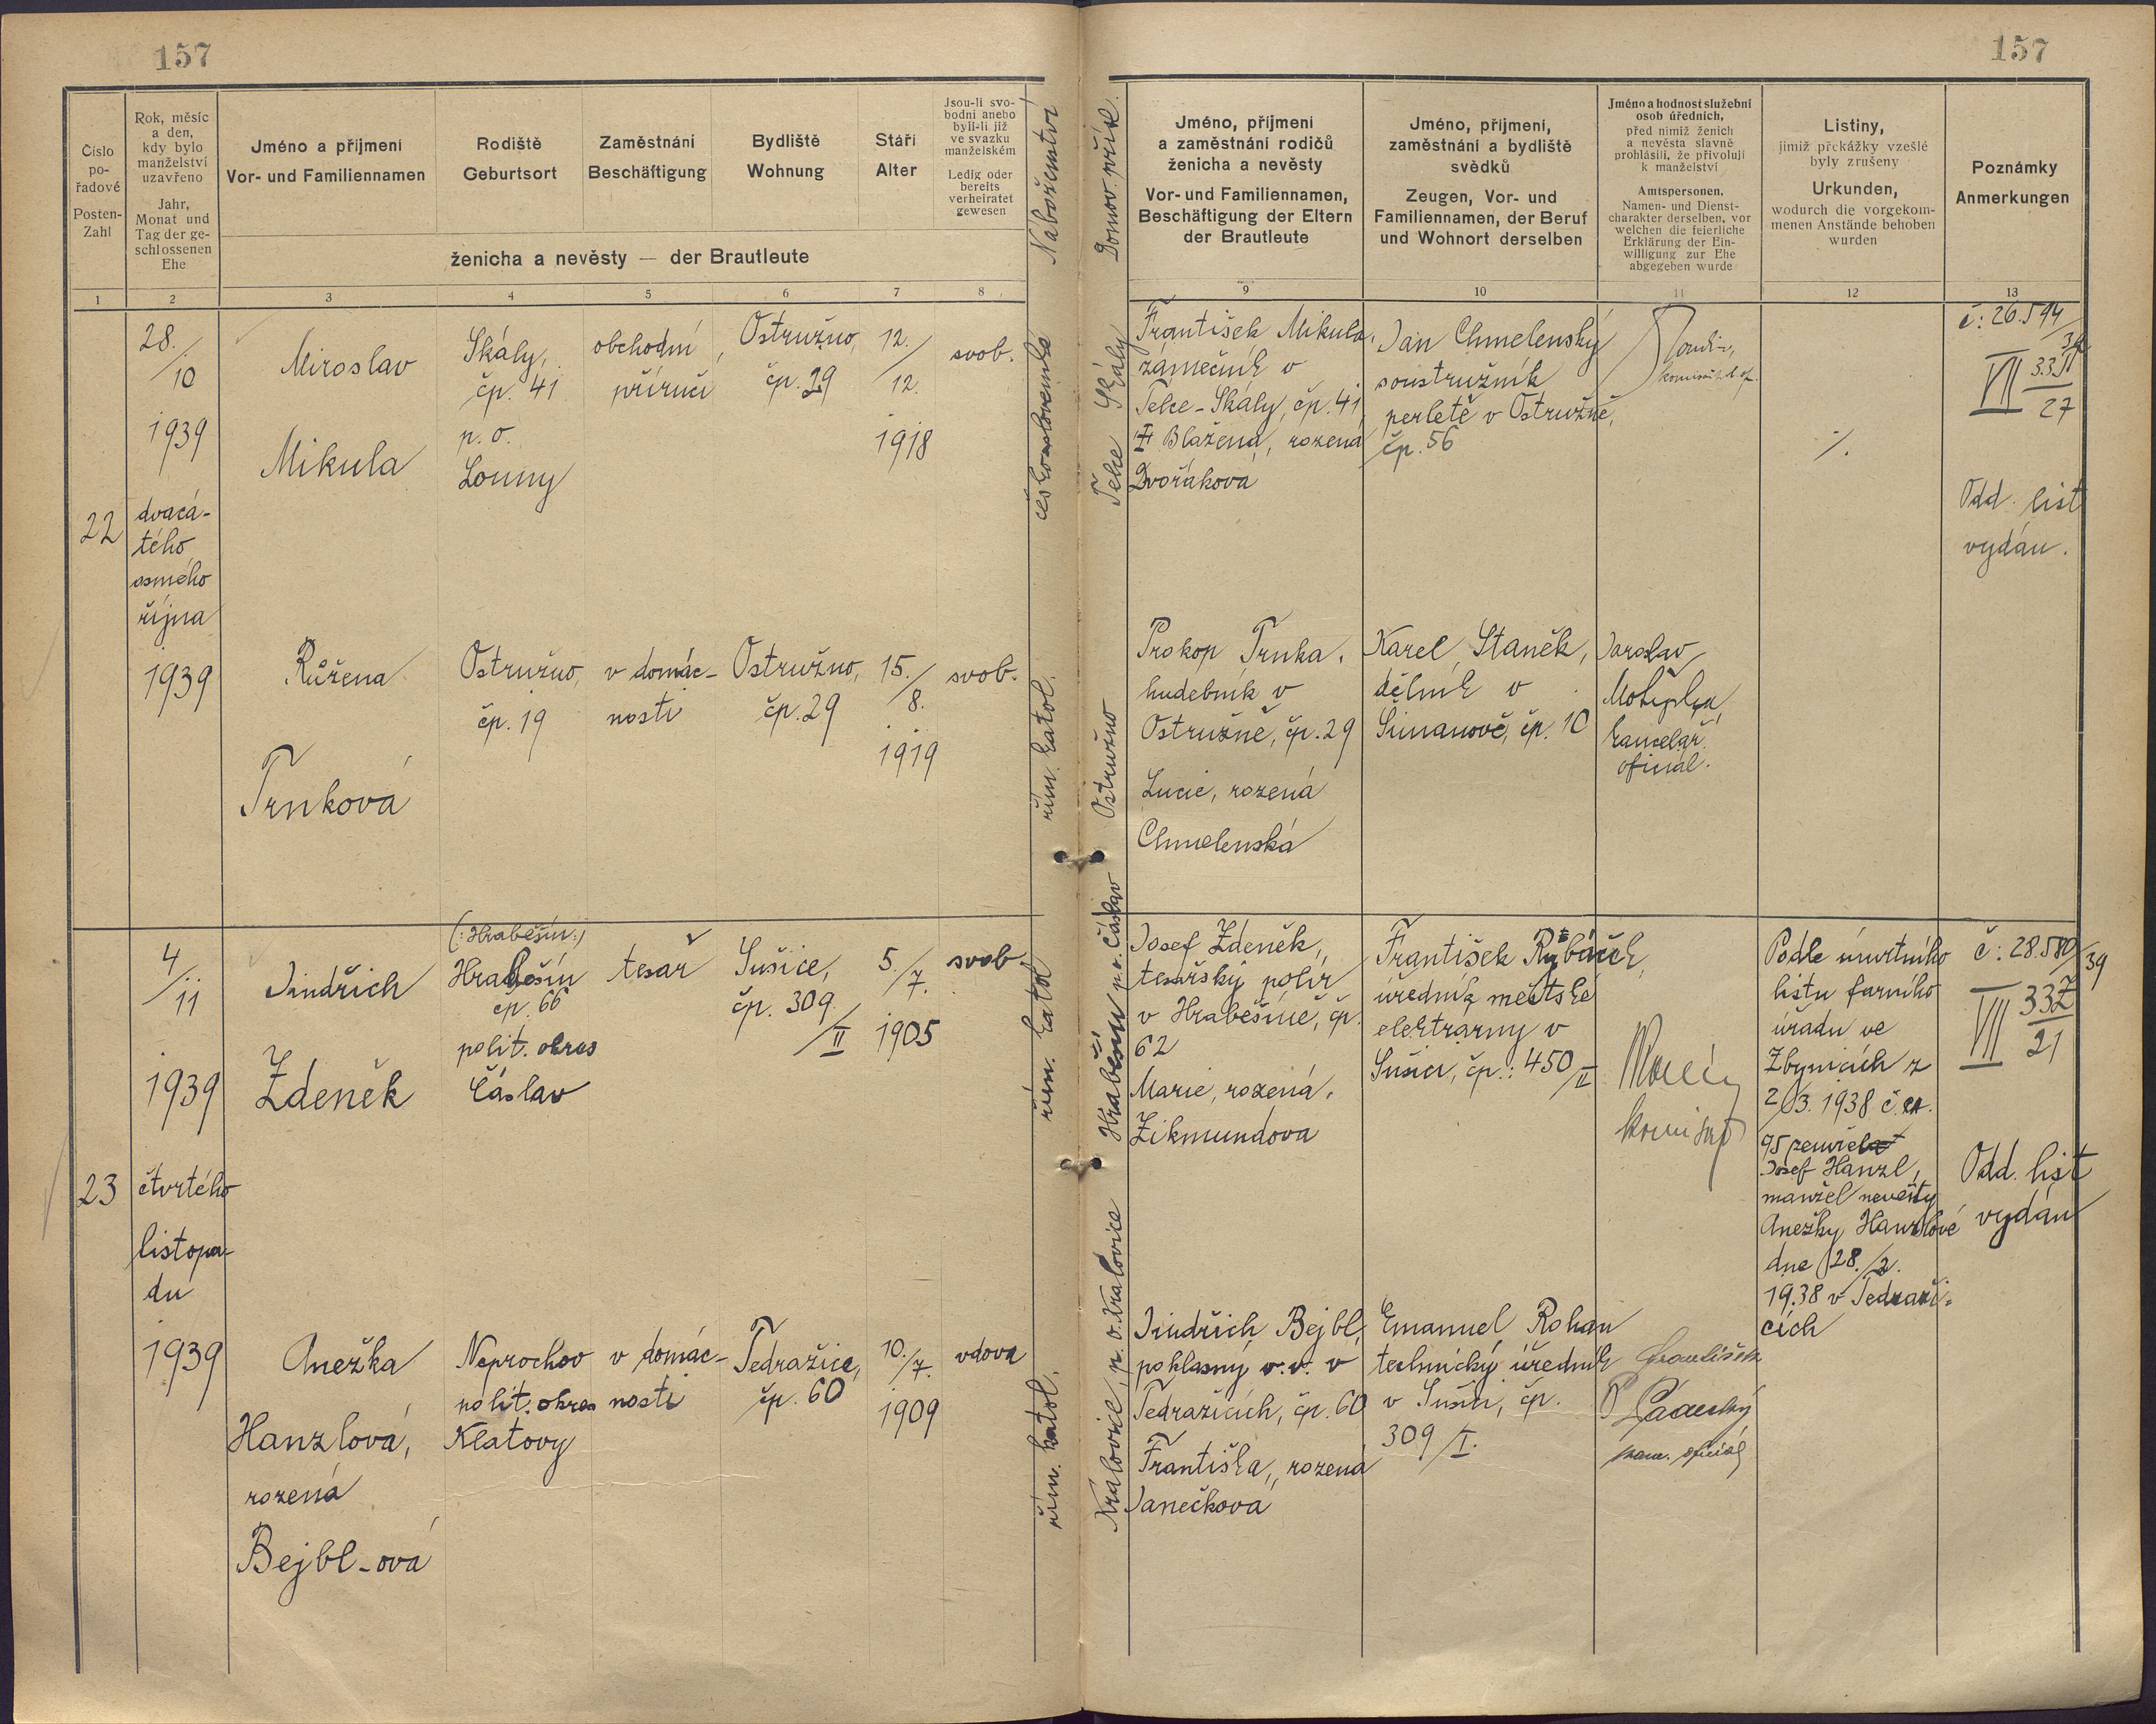 157
157
Číslo
po-
řadové
Posten-
Zahl
Rok, měsíc
a den,
kdy bylo
manželství
uzavřeno
Jahr,
Monat und
Tag der ge-
schlossenen
Ehe
Jméno a příjmení
Vor- und Familiennamen
Rodiště
Geburtsort
Zaměstnání
Beschäftigung
Bydliště
Wohnung
Stáří
Alter
Jsou-li svo-
bodni anebo
byli-li již
ve svazku
manželském
Ledig oder
bereits
verheiratet
gewesen
ženicha a nevěsty — der Brautleute
Náboženství
Domov. přísl.
Jméno, příjmení
a zaměstnání rodičů
ženicha a nevěsty
Vor- und Familiennamen,
Beschäftigung der Eltern
der Brautleute
Jméno, příjmení,
zaměstnání a bydliště
svědků
Zeugen, Vor- und
Familiennamen, der Beruf
und Wohnort derselben
Jméno a hodnost služební
osob úředních,
před nimiž ženich
a nevěsta slavně
prohlásili, že přivolují
k manželství
Amtspersonen,
Namen- und Dienst-
charakter derselben, vor
welchen die feierliche
Erklärung der Ein-
willigung zur Ehe
abgegeben wurde
Listiny,
jimiž překážky vzešlé
byly zrušeny
Urkunden,
wodurch die vorgekom-
menen Anstände behoben
wurden
Poznámky
Anmerkungen
1 2 3 4 5 6 7 8 9 10 11 12 13
22
28./10
1939
dvacá-
tého
osmého
října
1939
Miroslav
Mikula
Skály,
čp. 41
p. o.
Louny
obchodní
příručí
Ostružno,
čp. 29
12./12.
1918
svob.
československé
Telce Skály
František Mikula,
zámečník v
Telce-Skály, čp. 41,
Blažena, rozená
Dvořáková
Jan Chmelenský
soustružník
perletě v Ostružně,
čp. 56
./.
č: 26.594/39
VII 33M/27
Odd. list
vydán.
Růžena
Trnková
Ostružno,
čp. 19
v domác-
nosti
Ostružno,
čp. 29
15./8.
1919
svob.
řím. katol.
Ostružno
Prokop Trnka,
hudebník v
Ostružně, čp. 29
Lucie, rozená
Chmelenská
Karel Staněk,
dělník v
Šimanově, čp. 10
Jaroslav
kancelář.
oficiál.
23
4/11
1939
čtvrtého
listopa-
du
1939
Jindřich
Zdeněk
(:Hraběšín:)
Hraběšín
čp. 66
polit. okres
Čáslav
tesař
Sušice,
čp. 309/II
5./7.
1905
svob.
řím. katol.
Hraběšín p.o. Čáslav
Josef Zdeněk,
tesařský polír
v Hraběšíně, čp.
62
Marie, rozená
Zikmundova
František Rybáček,
úředník městské
elektrárny v
Sušici, čp.: 450/II
komisař
Podle úmrtního
listu farního
úřadu ve
Zbynicích z
2/3. 1938 č. ex.
95 zemřel
Josef Hanzl,
manžel nevěsty
Anežky Hanzlové
dne 28./2.
1938 v Tedraži-
cích
č: 28.580/39
VII 33Z/21
Odd. list
vydán
Anežka
Hanzlová,
rozená
Bejbl-ová
Neprochov
polit. okres
Klatovy
v domác-
nosti
Tedražice,
čp. 60
10./7.
1909
vdova
řím. katol.
Královice, p. o. Kralovice
Jindřich Bejbl,
poklasný v. v. v
Tedražicích, čp. 60
Františka, rozená
Janečková
Emanuel Rohan
technický úředník
v Sušici, čp.
309/I.
František
kanc. oficiál